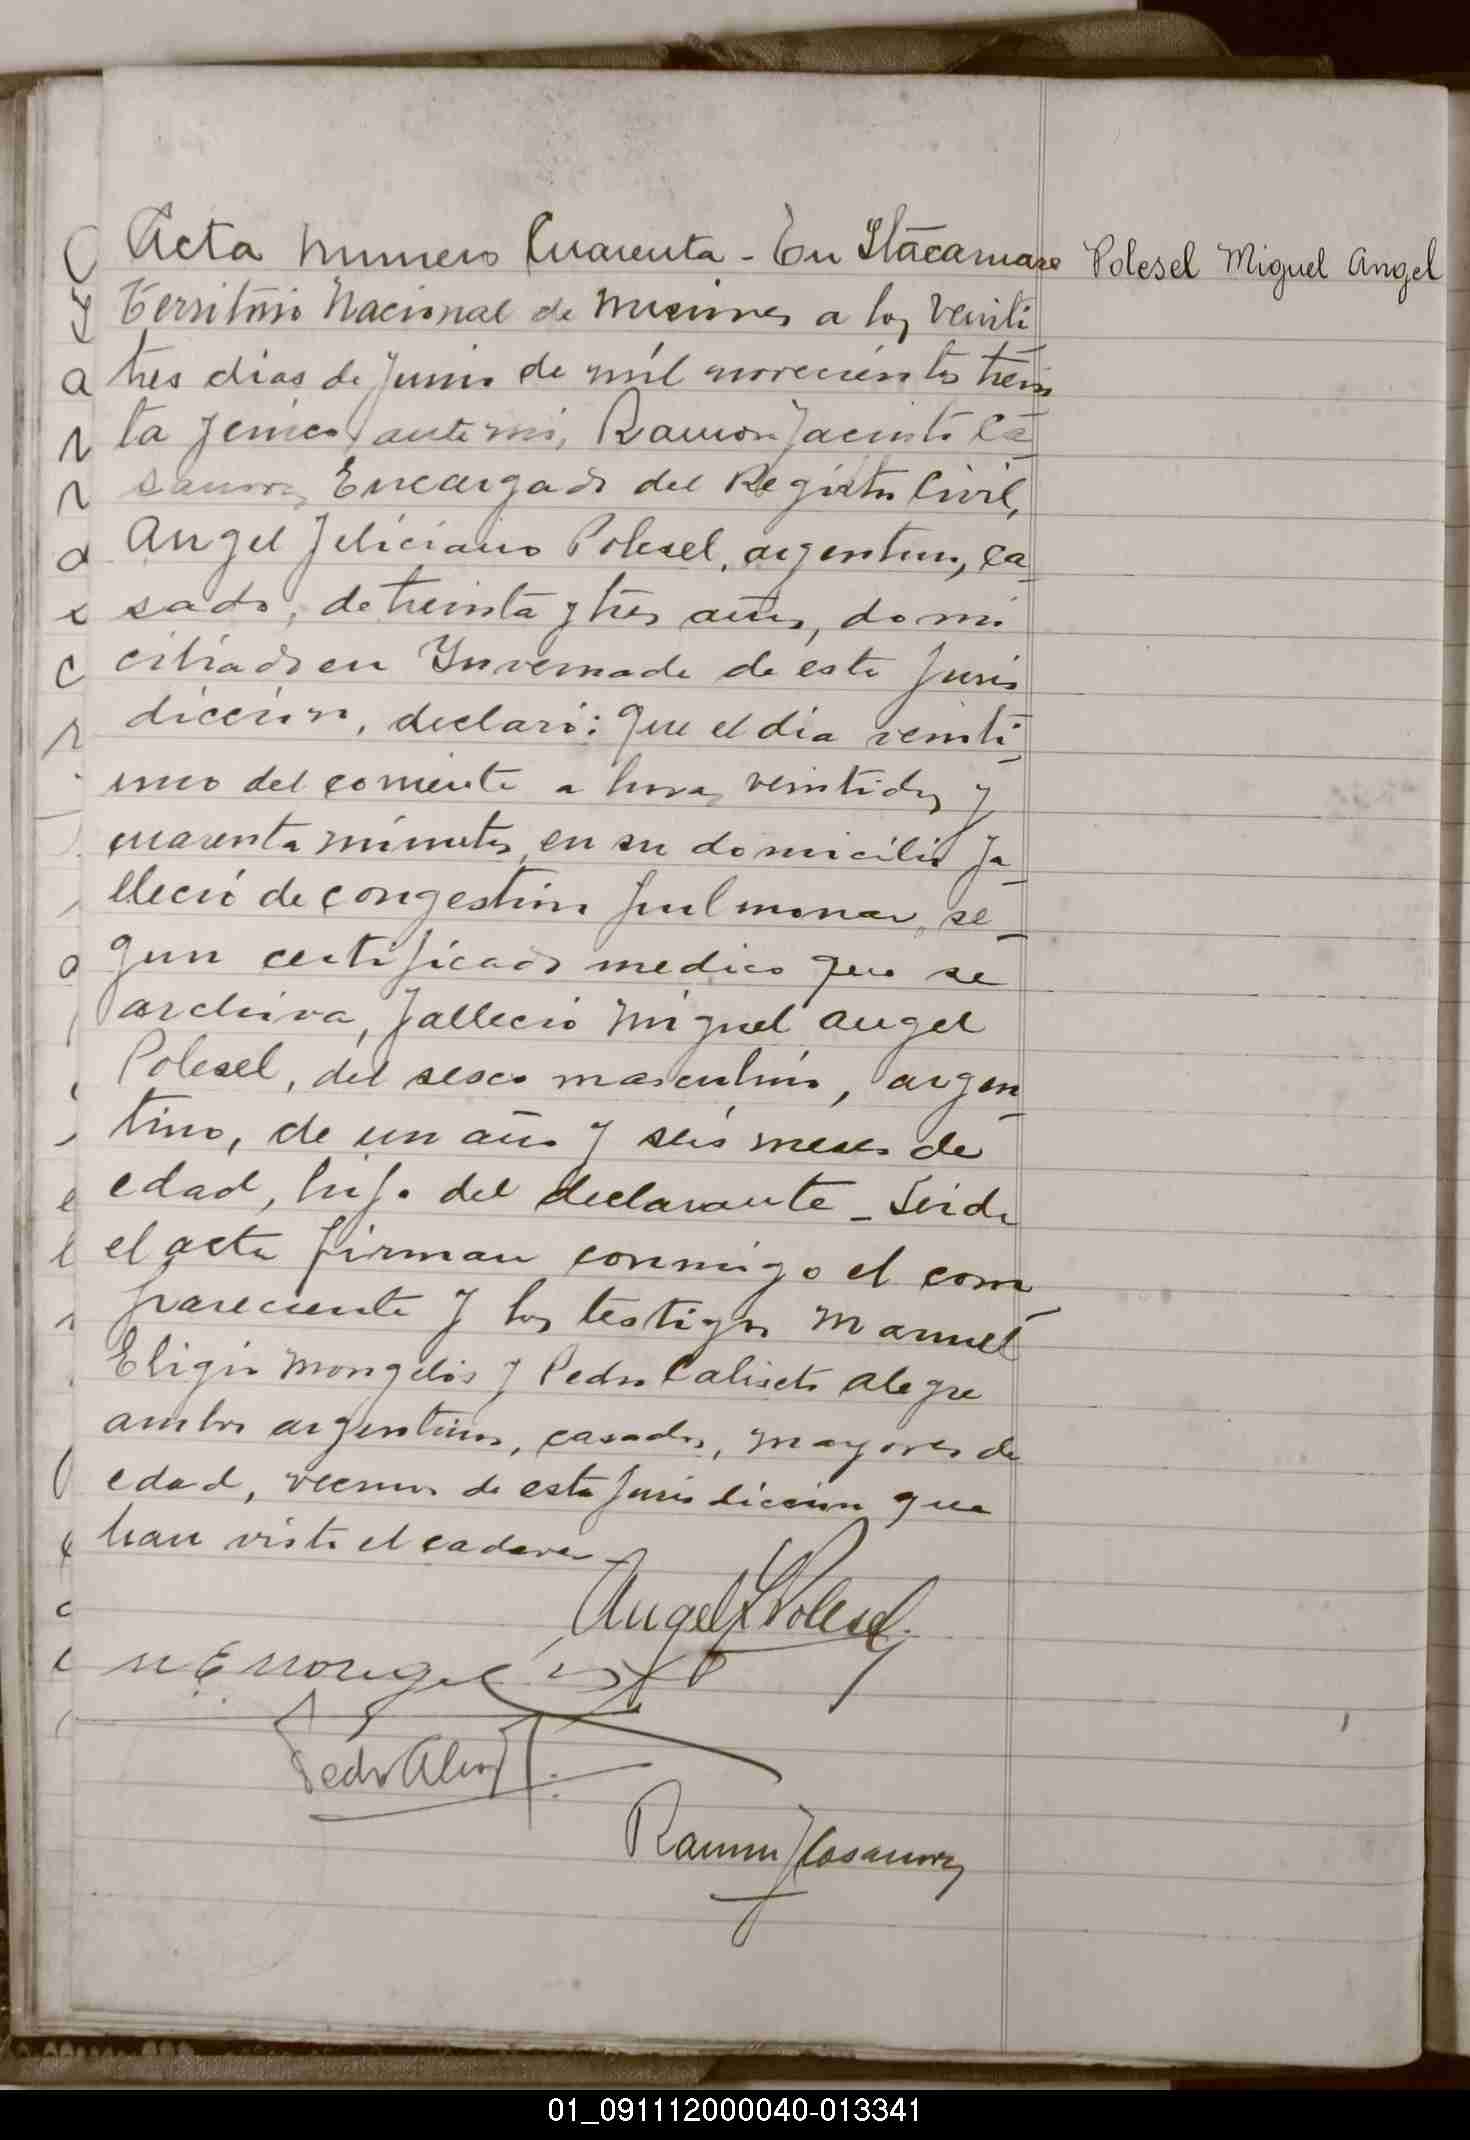 Acta numero Cuarenta - En Itacaruare
Polesel Miguel Angel
Territorio Nacional de Misiones a los veinti
tres dias de Junio de mil novecientos trein
ta y cinco, ante mi, Ramon Jacinto Ca-
samor, Encargado del Registro Civil,
Angel Feliciano Polesel, argentino, ca-
sado, de treinta y tres años, domi
ciliado en Invernada de esta juris
diccion, declaró: Que el dia veinti-
uno del corriente a horas veintidos y
cuarenta minutos, en su domicilio fa-
lleció de congestion pulmonar, se-
gun certificado medico que se
archiva, falleció Miguel Angel
Polesel, del sexo masculino, argen-
tino, de un año y seis meses de
edad, hijo del declarante - Leida
el acta firman conmigo el com-
pareciente y los testigos Manuel
Eligio Mongelós y Pedro Calisto Alegre
ambos argentinos, casados, mayores de
edad, vecinos de esta jurisdiccion que
han visto el cadaver -
Angel F Polesel
M E Mongelós
Pedro Aleg
Ramon J Casamor
01_091112000040-013341